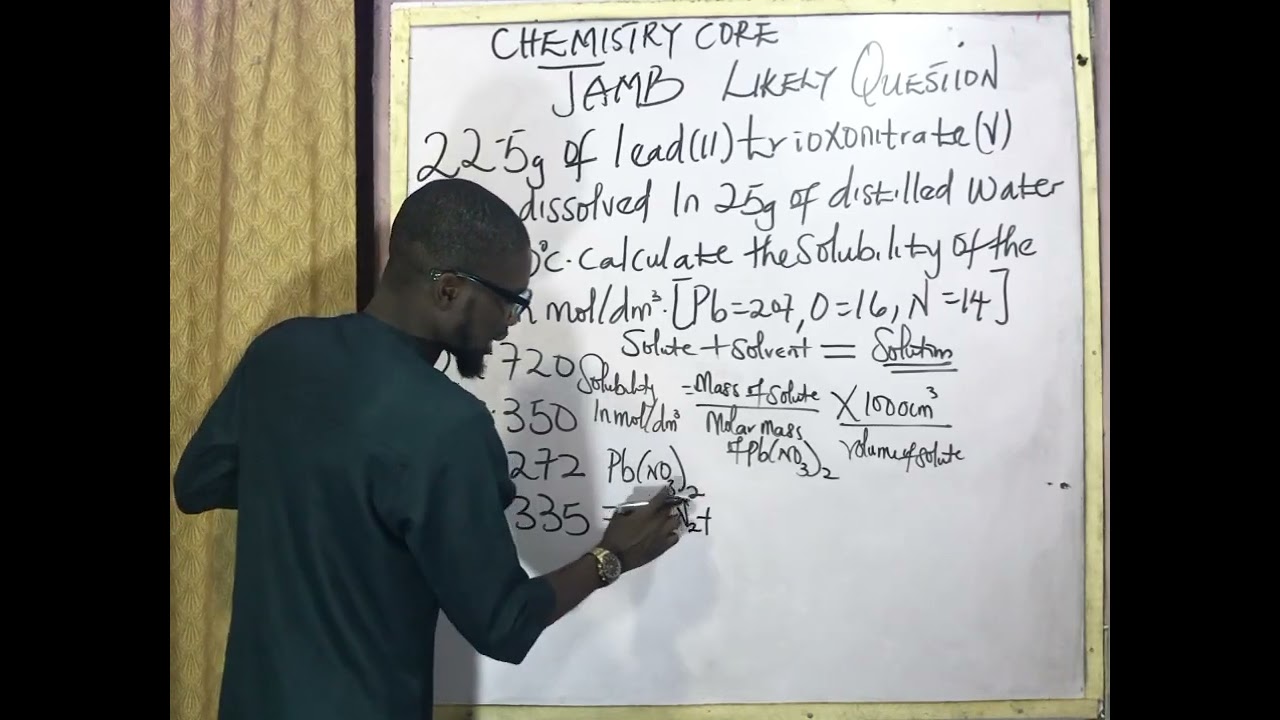 CHEMISTRY CORE
JAMB LIKELY QUESTION
22.5g of lead(II) trioxonitrate(V)
dissolved In 25g of distilled Water
°c. Calculate the Solubility of the
mol/dm³. [Pb=207, O=16, N=14]
Solute + Solvent = Solution
720
Solubility In mol/dm³ = Mass of Solute / Molar mass of Pb(NO3)2 X 1000cm³ / Volume of solute
350
272 Pb(NO3)2
335 =